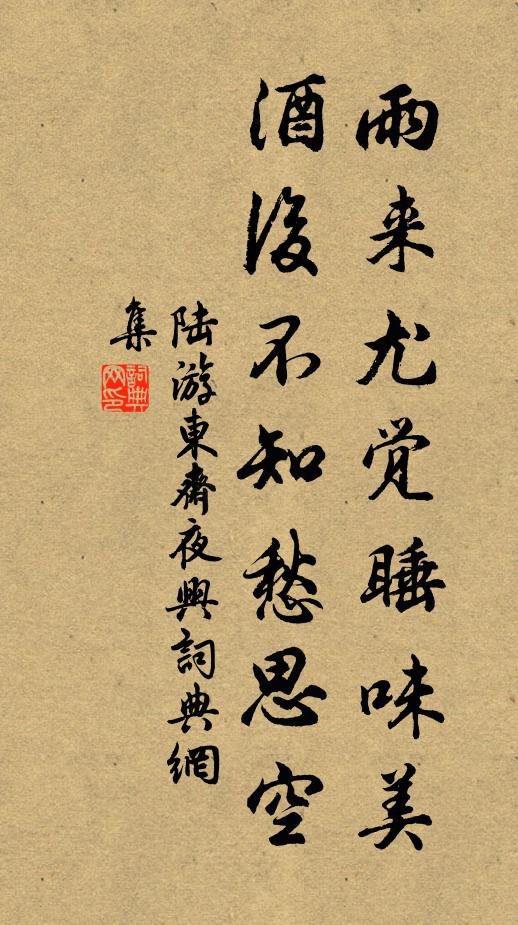 雨来尤觉睡味美
酒後不知愁思空
陆游東齋夜興詞典網
集
詞典
网印